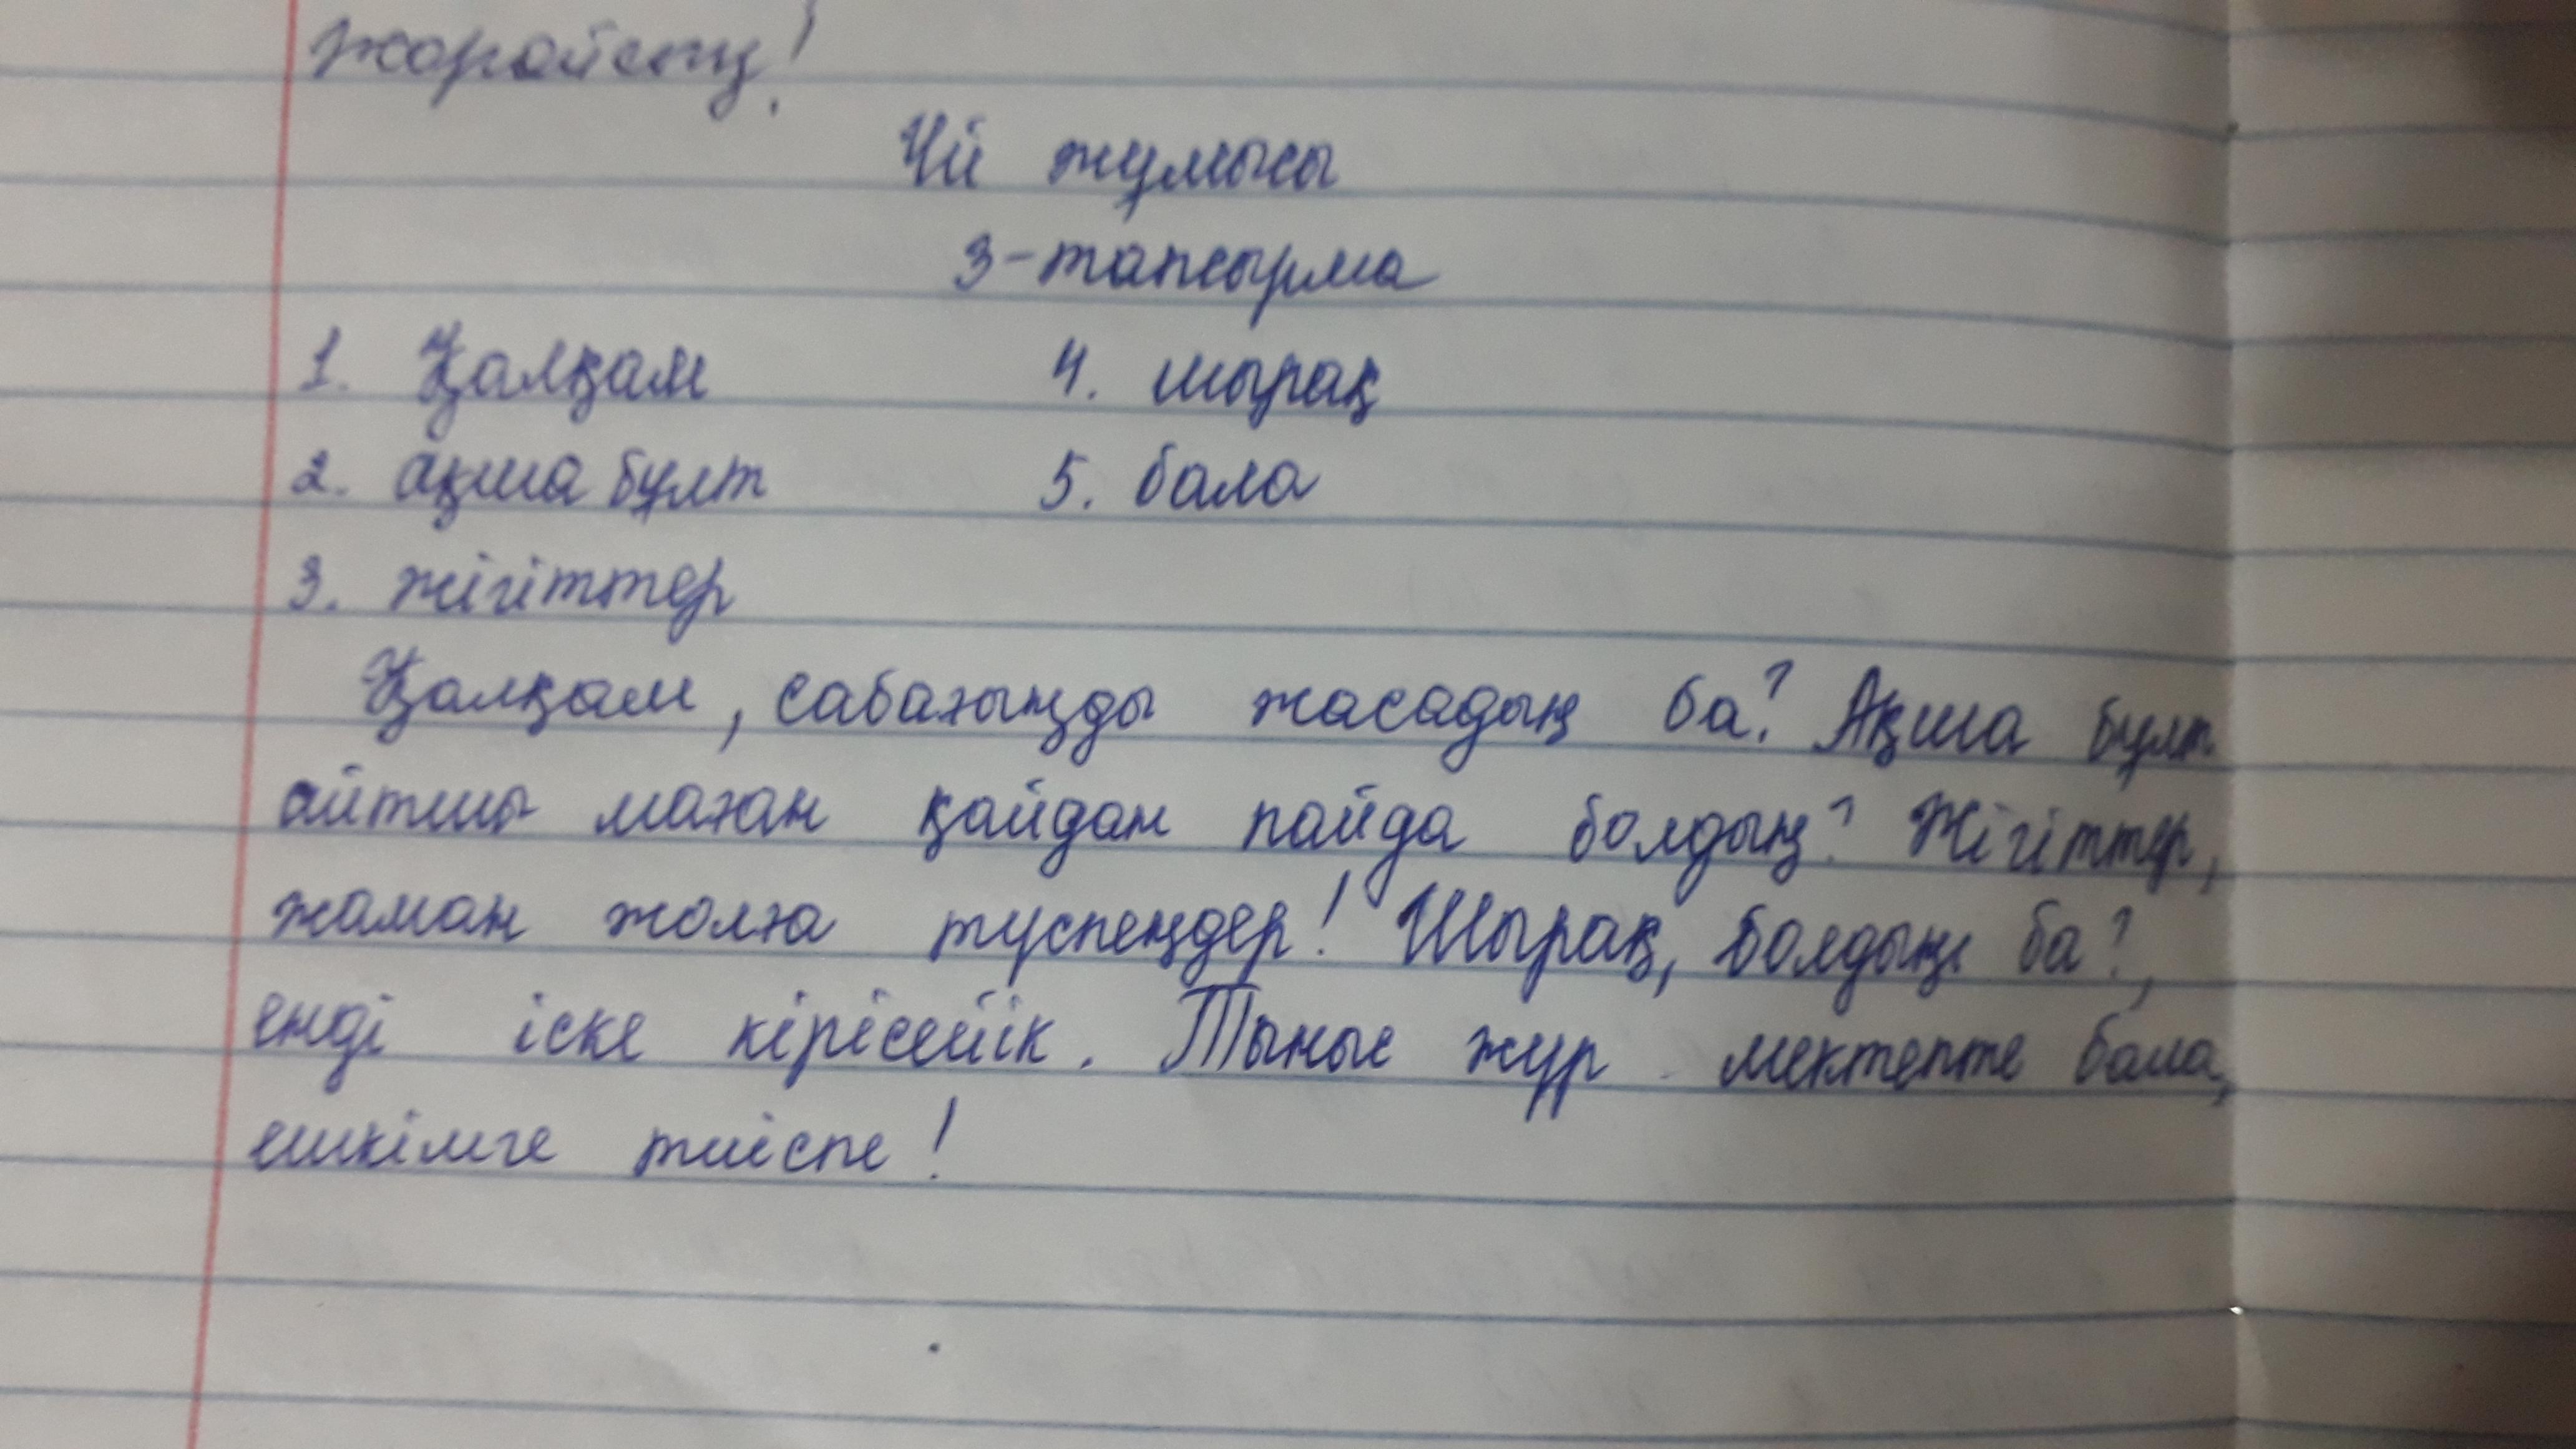 жарайсың!
Үй жұмысы
3-тапсырма
1. Қалқам 4. шырақ
2. ақша бұлт 5. бала
3. жігіттер
Қалқам, сабағыңды жасадың ба? Ақша бұлт
айтшы маған қайдан пайда болдың? Жігіттер,
жаман жолға түспеңдер! Шырақ, болдың ба?,
енді іске кірісейік. Тыныс жүр мектепте бала,
ешкімге тиіспе!